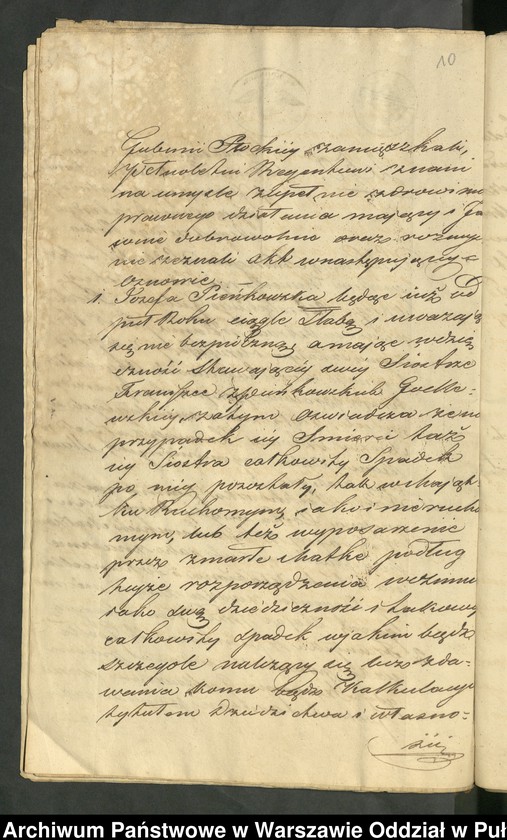 10
Gubernii Płockiej zamięszkali,
pełnoletni Regentowi znani
na umyśle zupełnie zdrowi
prawnego działania mający i Ja
wnie dobrowolnie oraz rozmy
nie zeznali akt w następującey
Osnowie
1. Józefa Pieńkowska będąc już od
puł Roku ciągle Słabą i uważają
się niebezpieczną, a mając
czność Stawającéy swéy Siostrze
Franciszce z Pieńkowskich
zatym oświadcza że na
przypadek iéy Śmierci taż
iéy Siostra całkowity Spadek
po niéy pozostały, tak w Mająt-
ku Ruchomym, iako i nierucho
mym, lub też wyposażenie
przez zmarłe Matkę podług
téyże rozporządzenia weźmie
iako swą dziedziczność i takowy
całkowity spadek w jakim bądź
szczegole należący się bez zda-
wania komu bądź Kalkulacyi
tytułem Dziedzictwa i własno-
ści
Archiwum Państwowe w Warszawie Oddział w Puł